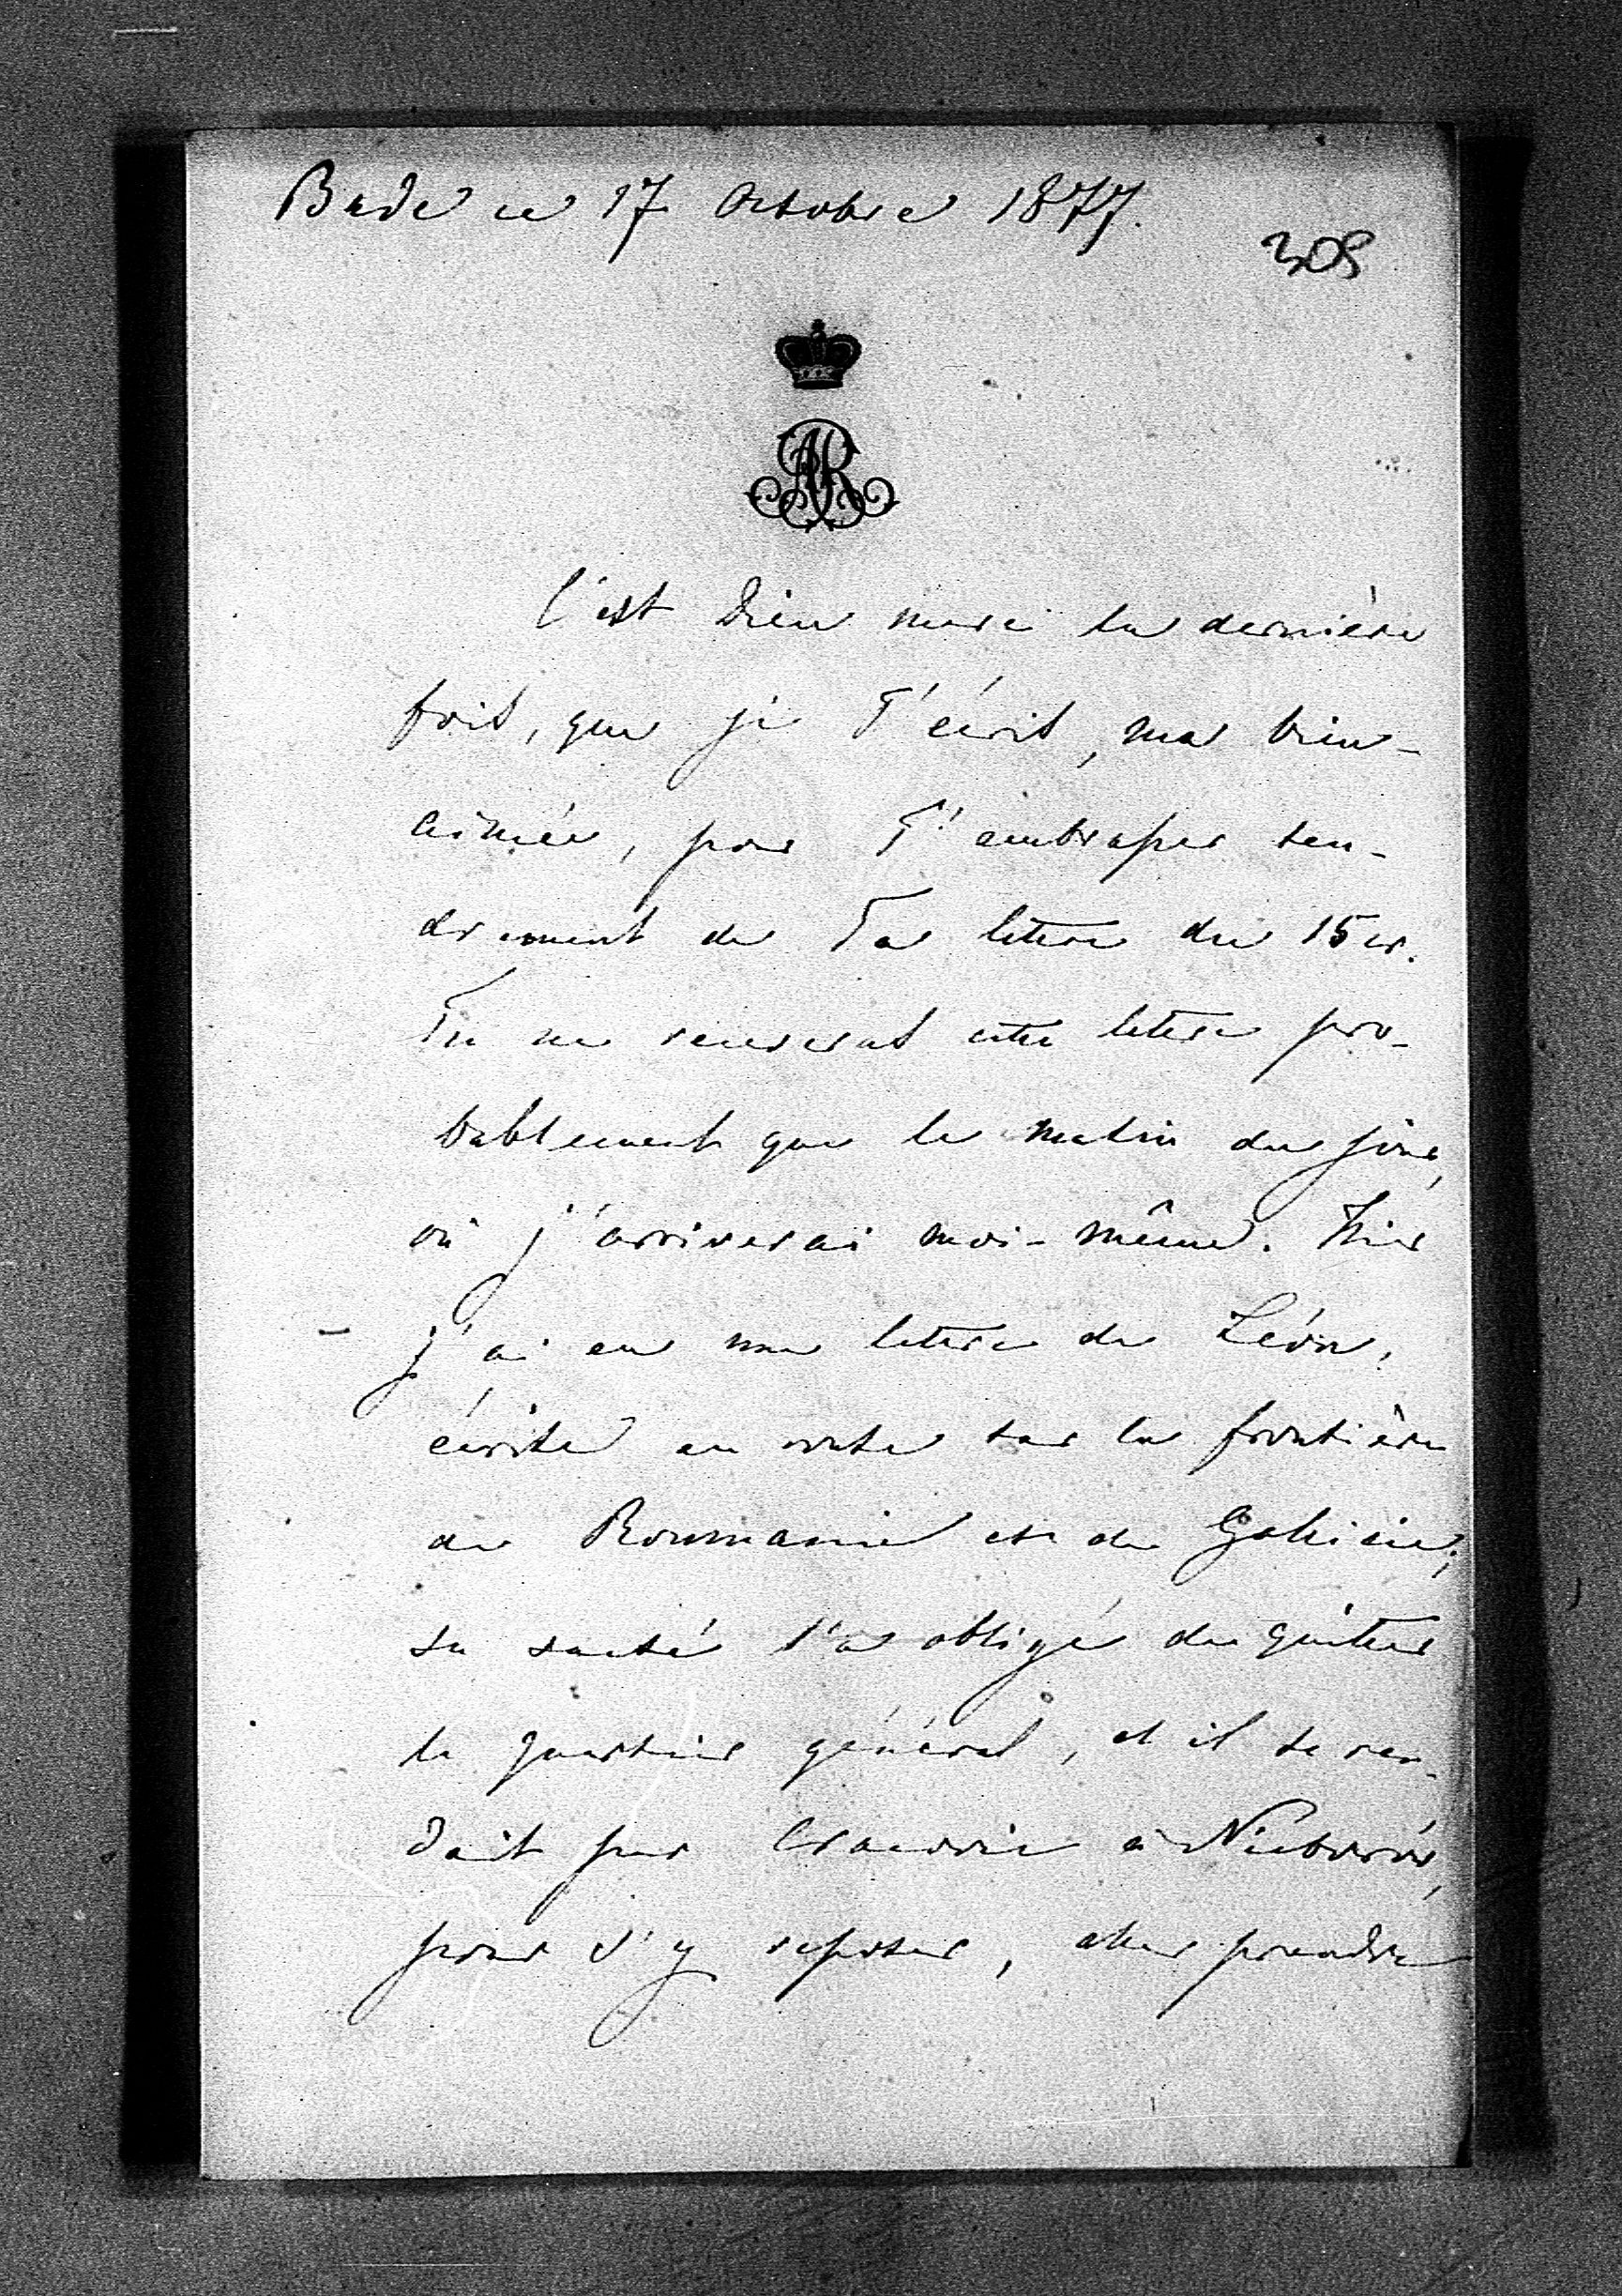 Bade ce 17 Octobre 1877.
308
AR
C'est Dieu merci la dernière
fois, que je T'écris, ma bien-
aimée, pour T'embrasser ten-
drement de Ta lettre du 15 cr.
Tu ne recevras cette lettre pro-
bablement que le matin du jour,
où j'arriverai moi-même. Hier
j'ai eu une lettre de Léon,
écrite en route sur la frontière
de Roumanie et de Galicie;
sa santé l'a obligé de quitter
le quartier général, et il se ren-
dait par Cracovie à Nieborów,
pour s'y reposer, aller prendre